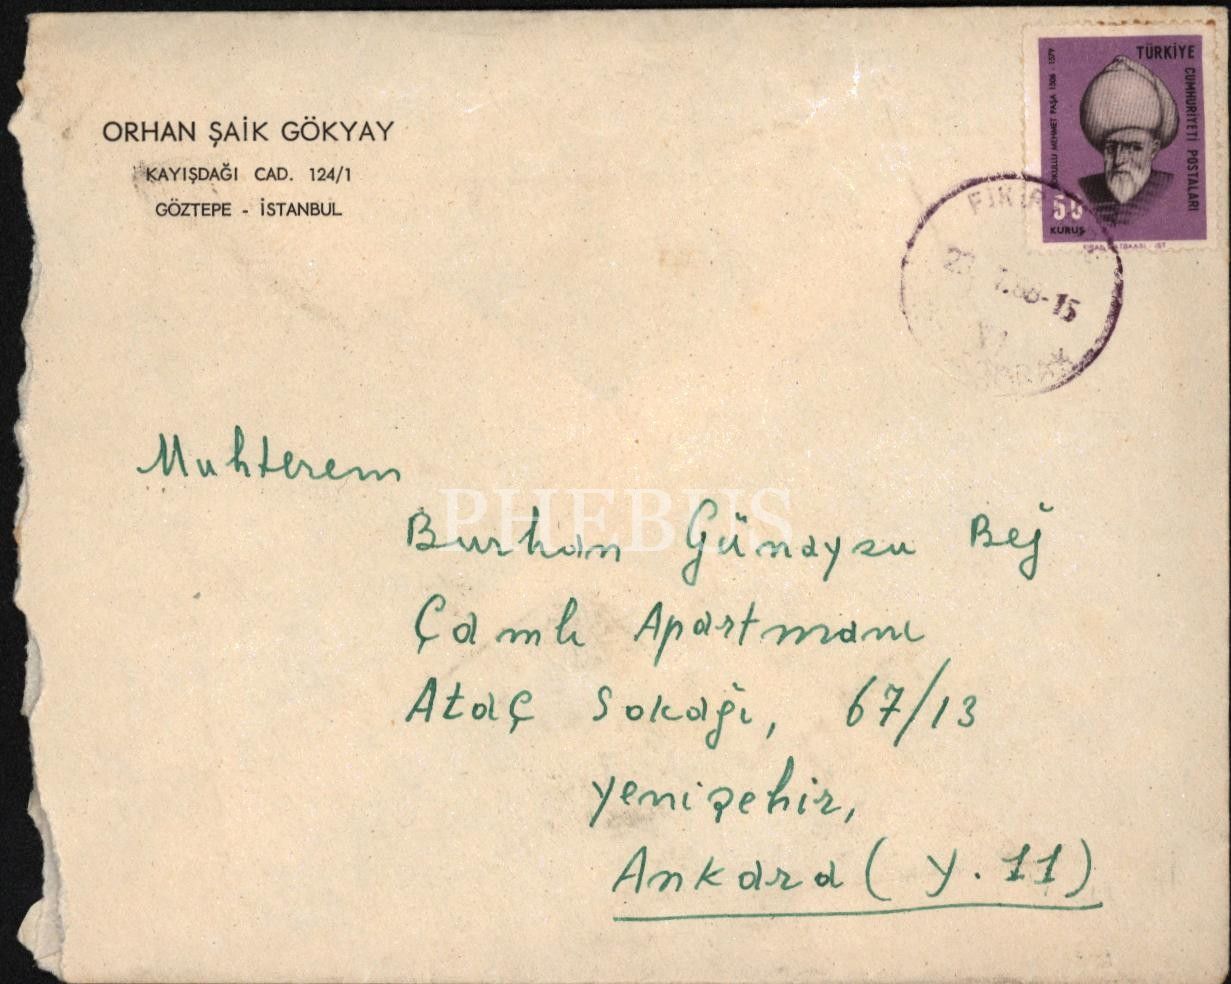 ORHAN ŞAİK GÖKYAY
KAYIŞDAĞI CAD. 124/1
GÖZTEPE - İSTANBUL
TÜRKİYE
CUMHURİYETİ POSTALARI
MEHMET PAŞA 1506 - 1579
50
KURUŞ
Muhterem
Burhan Günaysu Beğ
Çamlı Apartmanı
Ataç Sokağı, 67/13
Yenişehir,
Ankara (Y. 11)
PHEBUS